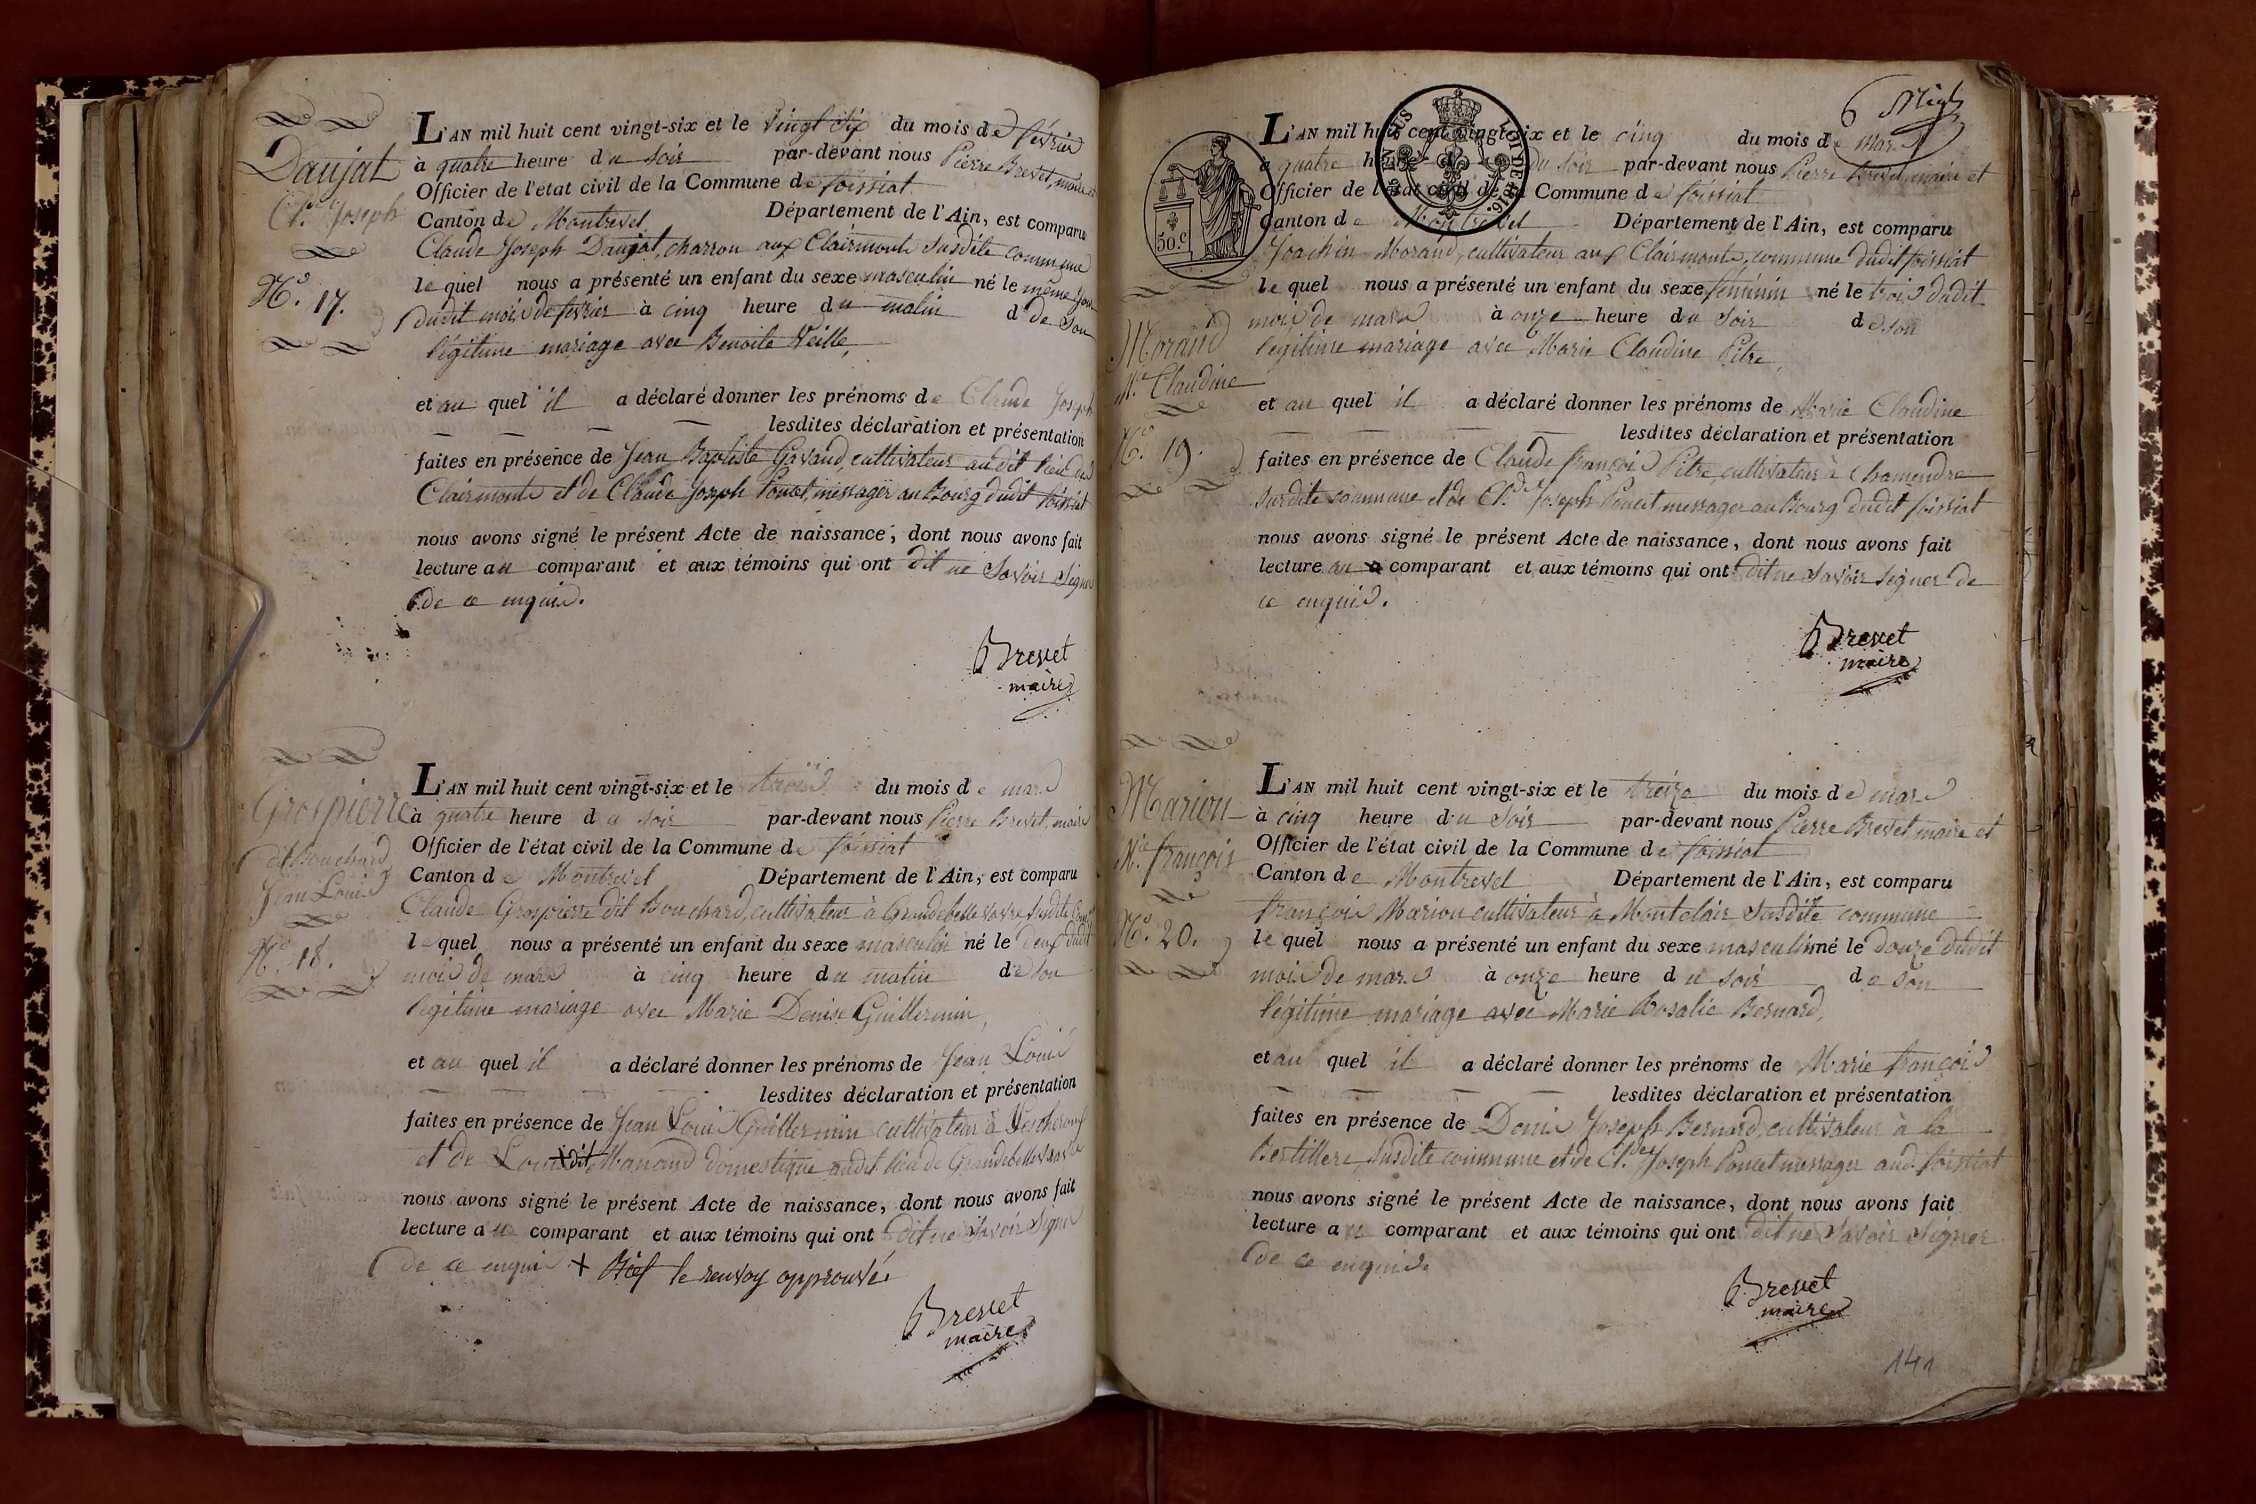 Daujat
Cl. Joseph
N.° 17.
L'AN mil huit cent vingt-six et le vingt six du mois de février
à quatre heure du soir par-devant nous Pierre Brevet, maire et
Officier de l'etat civil de la Commune de foissiat
Canton de Montrevel Département de l'Ain, est comparu
Claude Joseph Daujat, charron aux Clairmonts susdite commune
le quel nous a présenté un enfant du sexe masculin né le même jour
dudit mois de février à cinq heure du matin d de son
légitime mariage avec Benoite Veille,
et au quel il a déclaré donner les prénoms de Claude Joseph
lesdites déclaration et présentation
faites en présence de Jean Baptiste Gavand, cultivateur audit lieu des
Clairmonts et de Claude Joseph Poncet, messager au Bourg dudit foissiat
nous avons signé le présent Acte de naissance, dont nous avons fait
lecture au comparant et aux témoins qui ont dit ne savoir signer
de ce enquis.
Brevet
maire
Grospierre
dit Bouchard
Jean Louis
N.° 18.
L'AN mil huit cent vingt-six et le trois du mois de mars
à quatre heure du soir par-devant nous Pierre Brevet, maire
Officier de l'état civil de la Commune de foissiat
Canton de Montrevel Département de l'Ain, est comparu
Claude Grospierre dit Bouchard, cultivateur à Grandebellevavre susdite
le quel nous a présenté un enfant du sexe masculin né le deux dudit
mois de mars à cinq heure du matin de son
légitime mariage avec Marie Denise Guillermin,
et au quel il a déclaré donner les prénoms de Jean Louis
lesdites déclaration et présentation
faites en présence de Jean Louis Guillermin cultivateur à Lescheroux
et de Louis dit Manoud domestique audit lieu de Grandebellevavre
nous avons signé le présent Acte de naissance, dont nous avons fait
lecture au comparant et aux témoins qui ont dit ne savoir signer
de ce enquis + le renvoy approuvé.
Brevet
maire
6
L'AN mil huit cent vingt-six et le cinq du mois de mars
à quatre heure du soir par-devant nous Pierre Brevet, maire et
Officier de l'état civil de la Commune de foissiat
Canton de Montrevel Département de l'Ain, est comparu
50.c
Joachin Morand, cultivateur aux Clairmonts, commune dudit foissiat
le quel nous a présenté un enfant du sexe féminin né le trois dudit
mois de mars à onze heure du soir de son
Morand
légitime mariage avec Marie Claudine Pitre,
M.e Claudine
et au quel il a déclaré donner les prénoms de Marie Claudine
lesdites déclaration et présentation
N.° 19.
faites en présence de Claude françois Pitre, cultivateur à Chamendre
susdite commune et de Cl.de Joseph Poncet messager au Bourg dudit foissiat
nous avons signé le présent Acte de naissance, dont nous avons fait
lecture au comparant et aux témoins qui ont dit ne savoir signer de
ce enquis.
Brevet
maire
Marion
M.e françois
N.° 20.
L'AN mil huit cent vingt-six et le treize du mois de mars
à cinq heure du soir par-devant nous Pierre Brevet, maire et
Officier de l'état civil de la Commune de foissiat
Canton de Montrevel Département de l'Ain, est comparu
françois Marion cultivateur à Montclair susdite commune
le quel nous a présenté un enfant du sexe masculin né le douze dudit
mois de mars à onze heure du soir de son
légitime mariage avec Marie Rosalie Bernard,
et au quel il a déclaré donner les prénoms de Marie françois
lesdites déclaration et présentation
faites en présence de Denis Joseph Bernard, cultivateur à la
Bertillere, susdite commune et de Cl.de Joseph Poncet messager aud. foissiat
nous avons signé le présent Acte de naissance, dont nous avons fait
lecture au comparant et aux témoins qui ont dit ne savoir signer
de ce enquis.
Brevet
maire
141